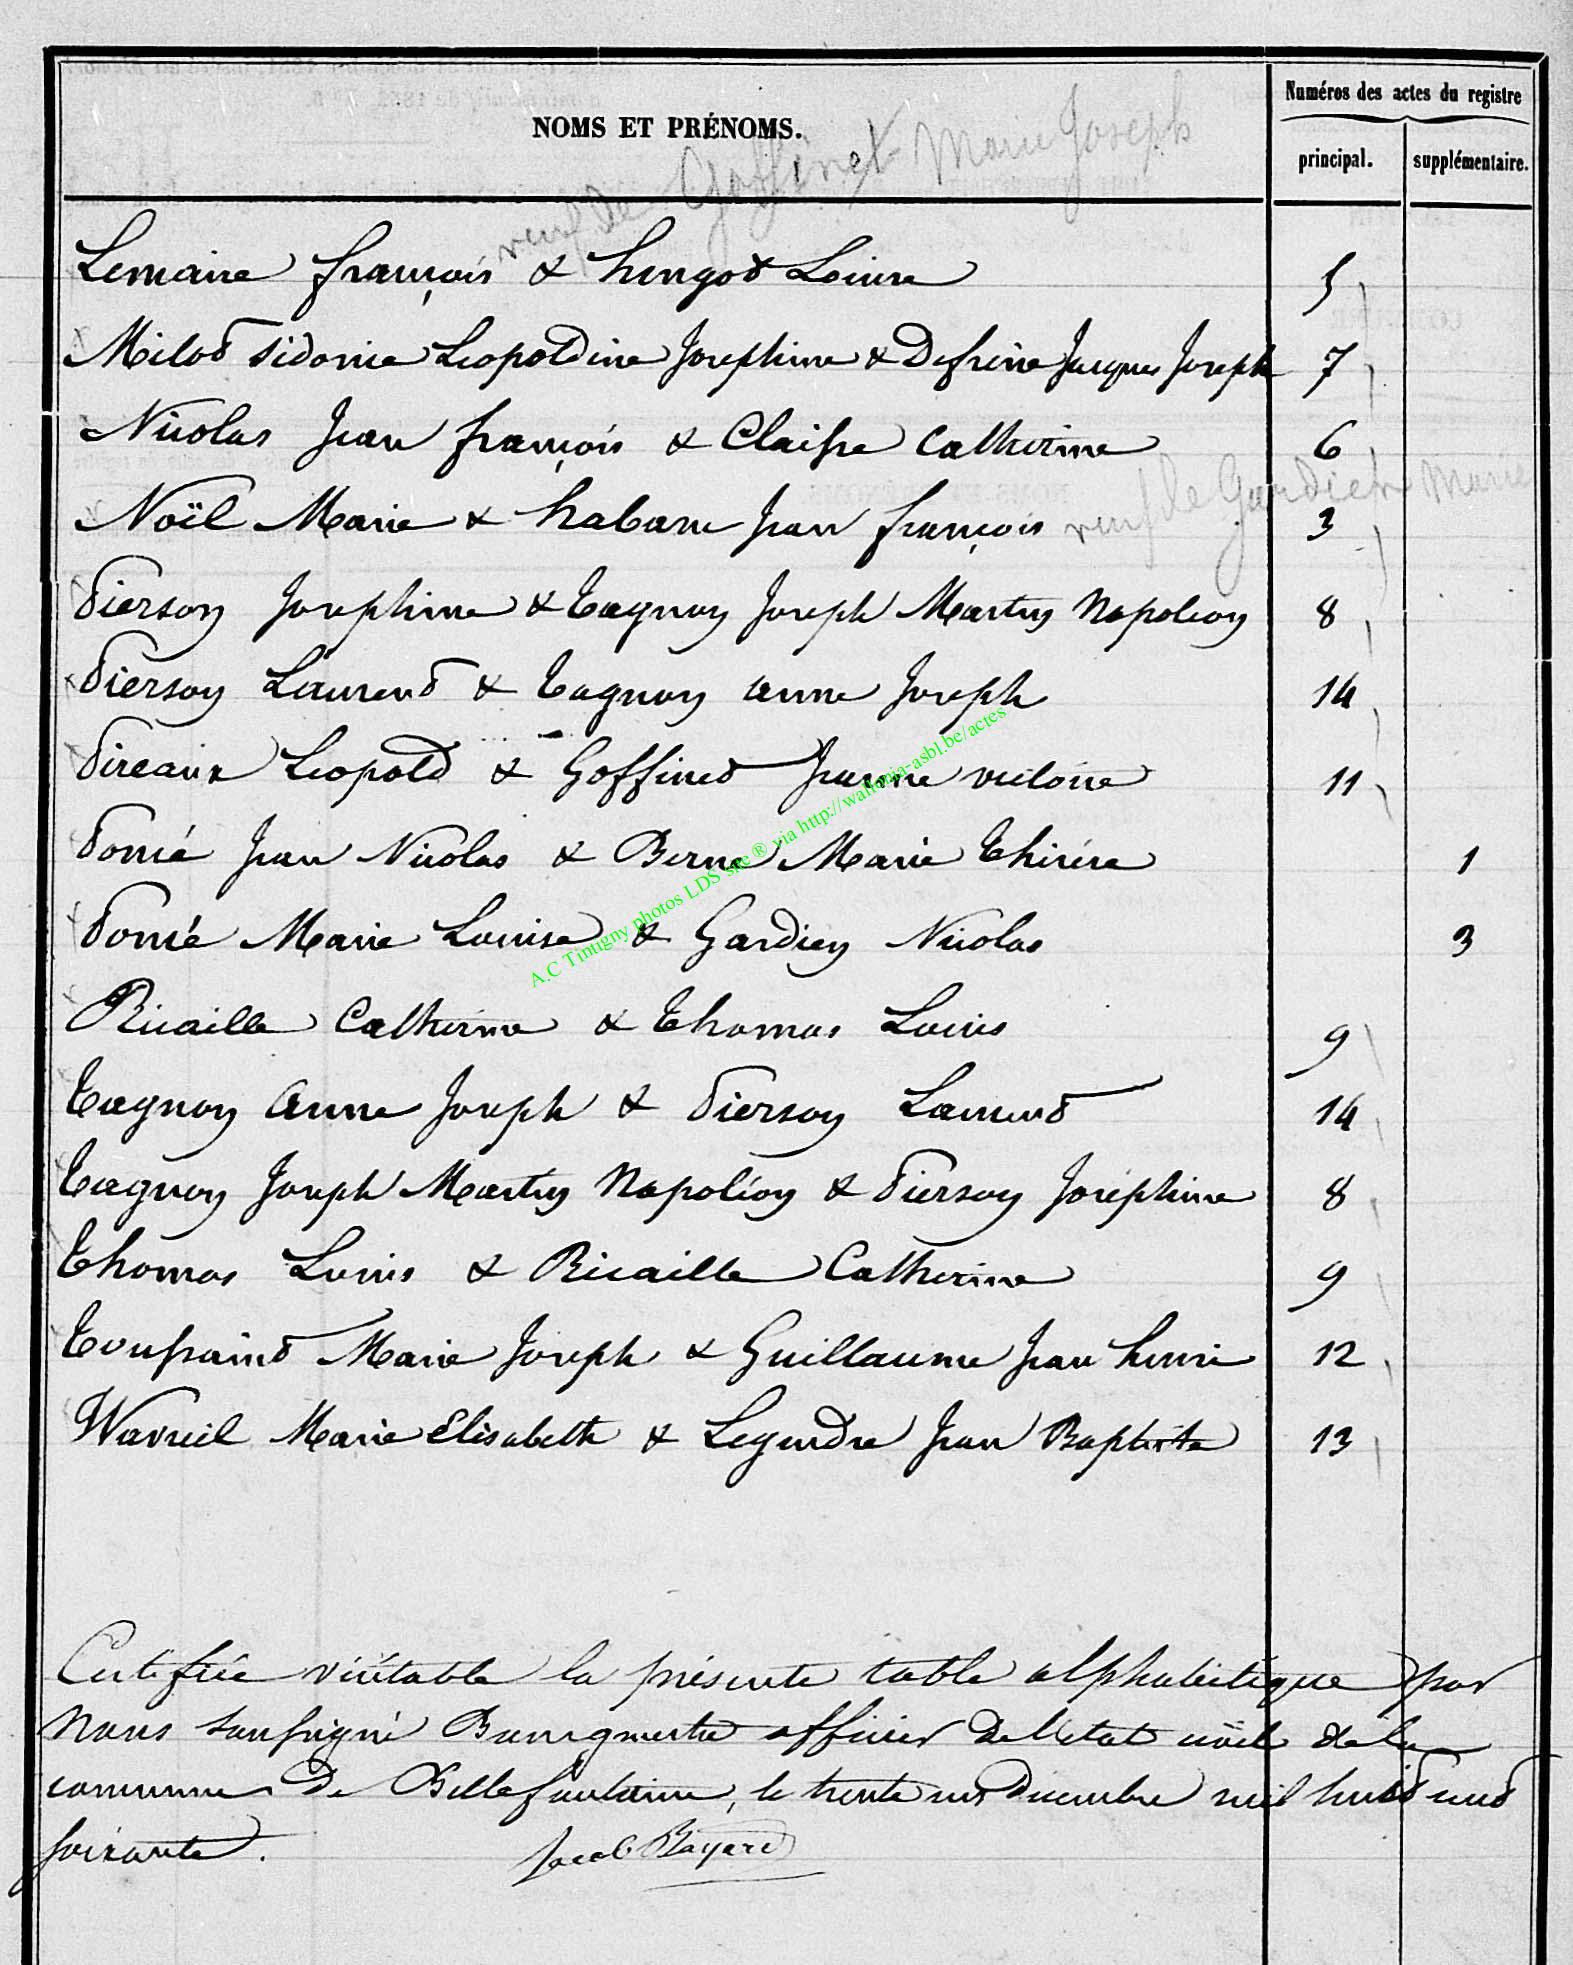 Numéros des actes du registre
NOMS ET PRÉNOMS.
principal. supplémentaire.
veuf de Goffinet Marie Joseph
Lemaire françois & hengot Louise 5
Milot Sidonie Leopoldine Josephine & Defrène Jacques Joseph 7
Nicolas Jean françois & Claisse Catherine 6
veuf de Gardien Marie
Noël Marie & habaru Jean françois 3
Pierson Josephine & Tagnon Joseph Martin Napoleon 8
Pierson Laurent & Tagnon anne Joseph 14
Pireaux Leopold & Goffinet Jeanne victoire 11
Poncé Jean Nicolas & Berne Marie Thérèse 1
Poncé Marie Louise & Gardien Nicolas 3
Ricaille Catherine & Thomas Louis 9
Tagnon anne Joseph & Pierson Laurent 14
Tagnon Joseph Martin Napoléon & Pierson Joséphine 8
Thomas Louis & Ricaille Catherine 9
Toussaint Marie Joseph & Guillaume Jean henri 12
Wavreil Marie Elisabeth & Legendre Jean Baptiste 13
Certifiée véritable la présente table alphabétique par
Nous soussigné Bourgmestre officier de l'état civil de la
commune de Bellefontaine, le trente un décembre mil huit cent
soixante.
Jacob Bayard
A.C Tintigny photos LDS spe ® via http://wallonia-asbl.be/actes